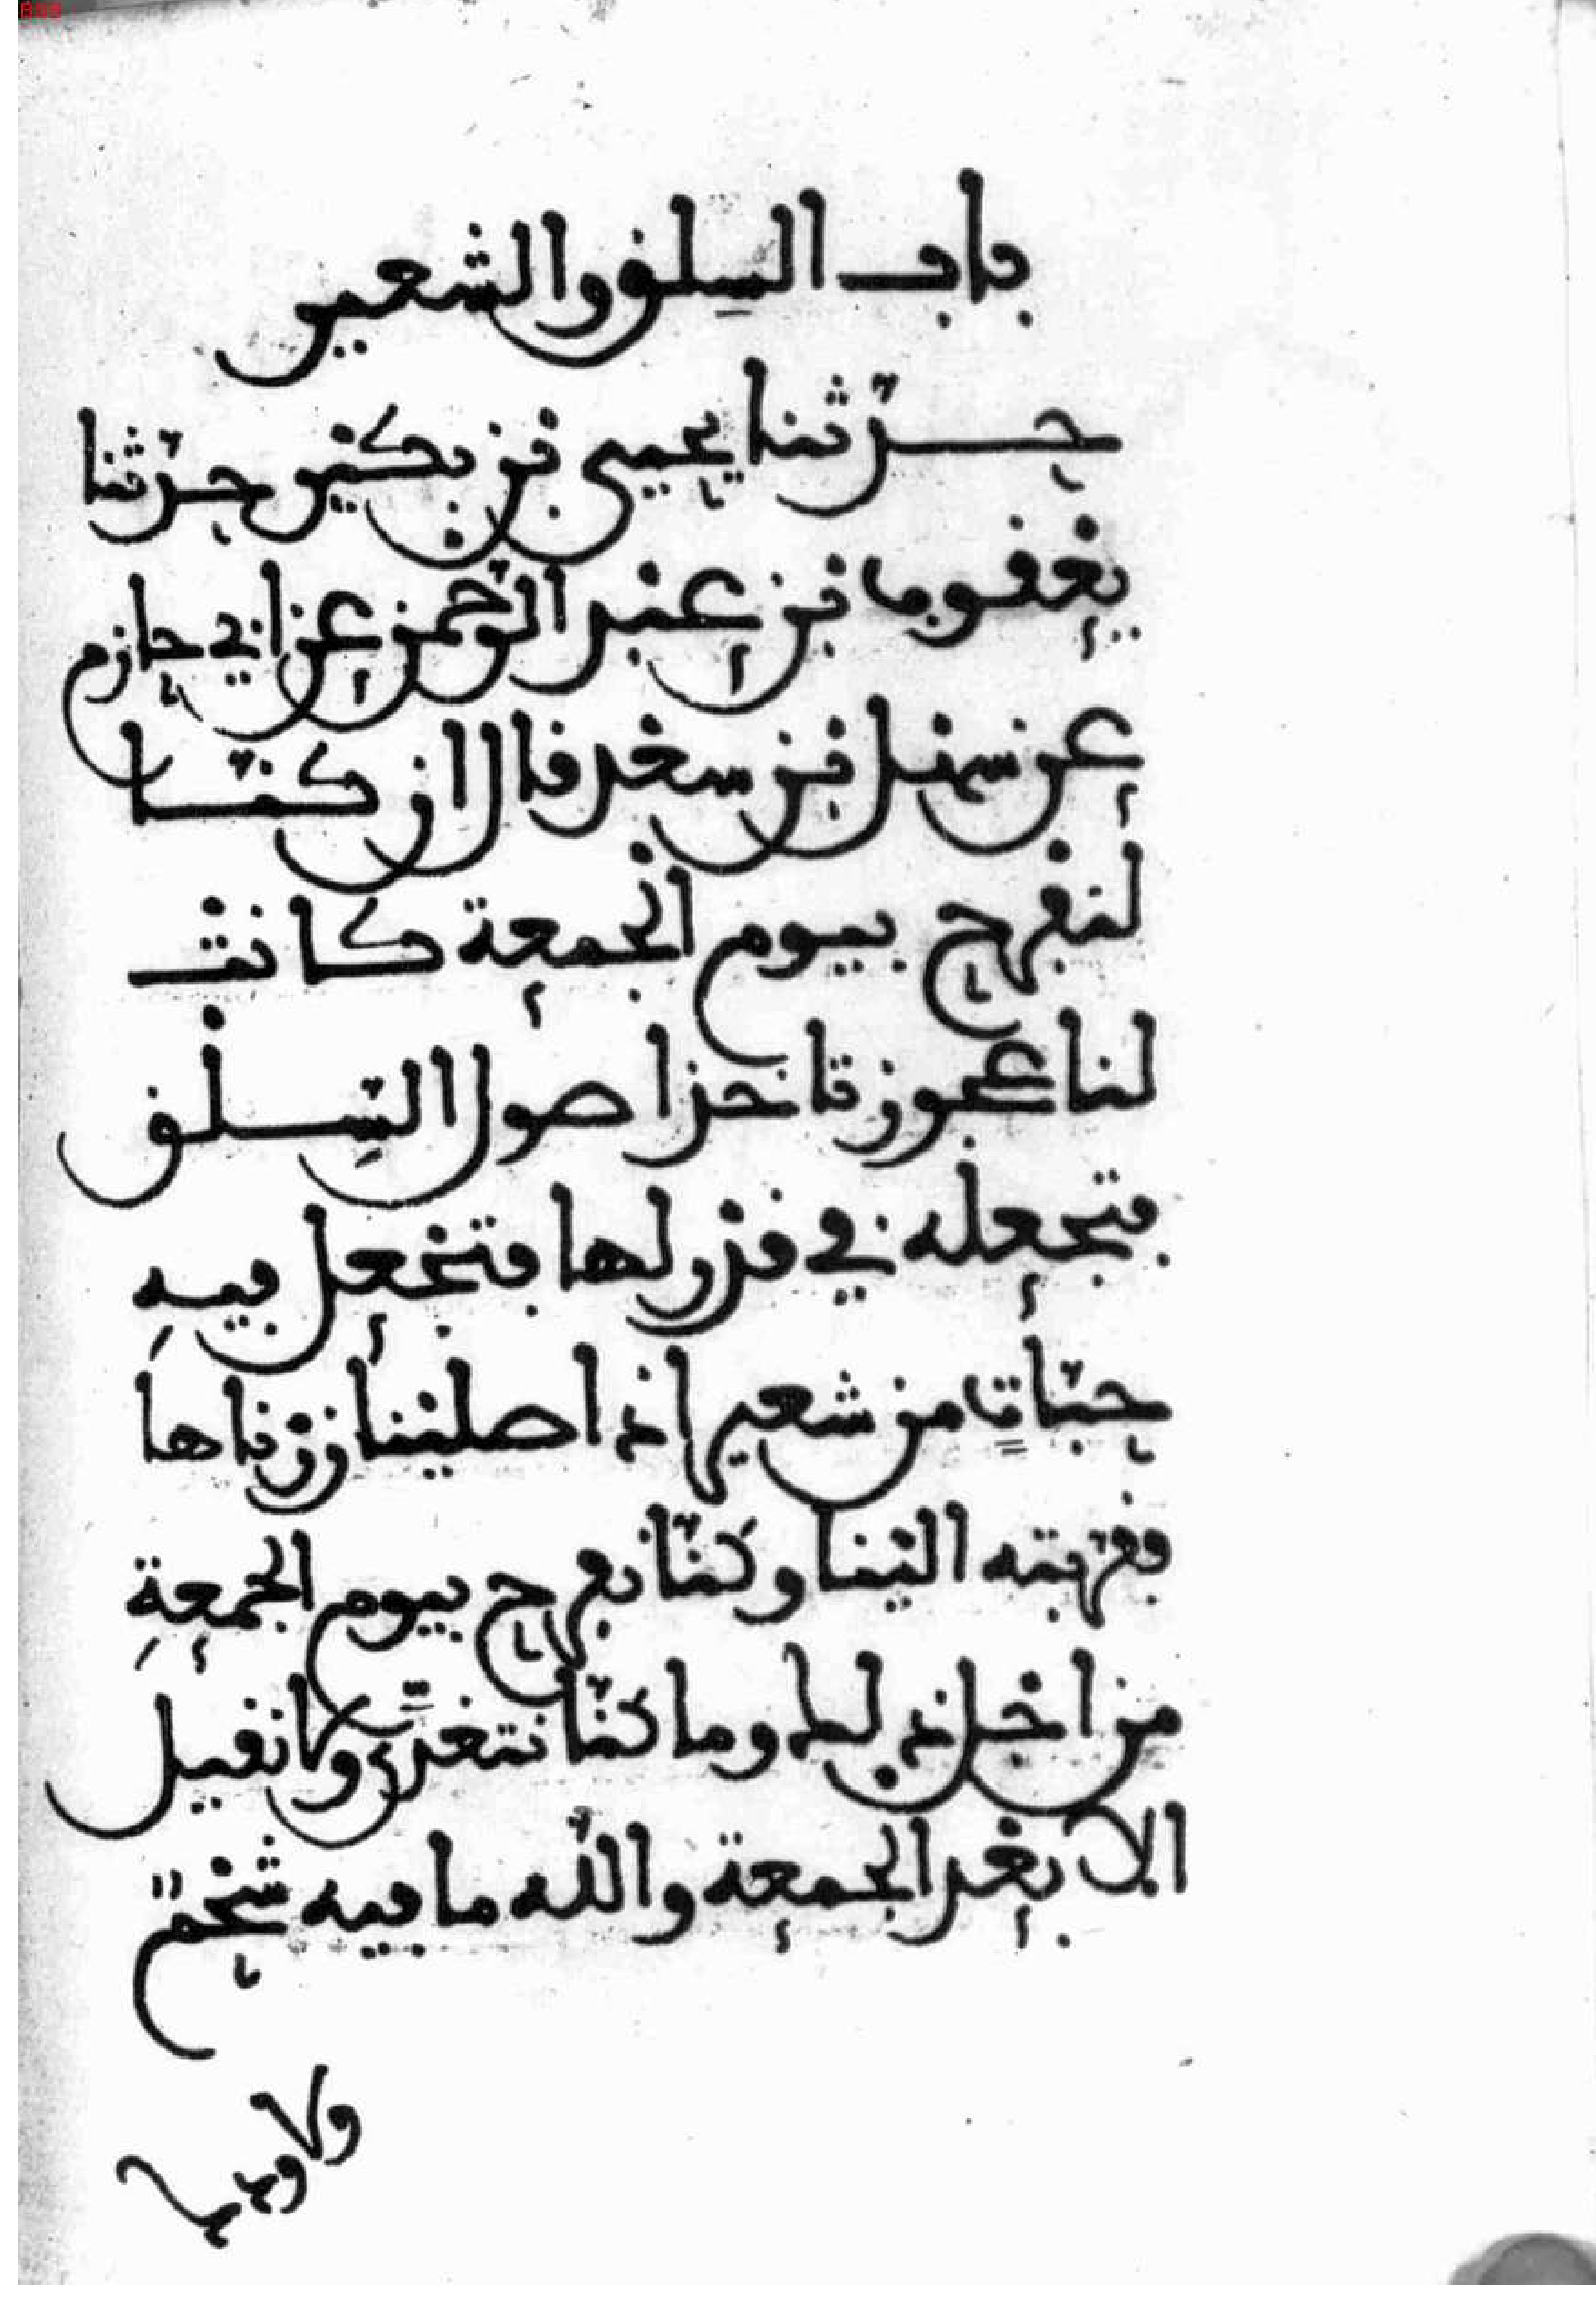 باب السلق والشعير
حدّثنا يحيى بن بكير حدّثنا
يعقوب بن عبد الرّحمن عن ابي حازم
عن سهل بن سعد قال ان كنّا
لنفرح بيوم الجمعة كانت
لنا عجوز تاخذ اصول السِّلق
فتجعله في قدر لها فتجعل فيهِ
حبّاتٍ من شعير اذا صلينا زرناها
فقرّبته الينا وكنّا نفرح بيوم الجمعةِ
من اجل ذلك وما كنّا نتغدّى ولا نقيل
الا بعد الجمعة والله ما فيه شحمٌ
ولا ودك